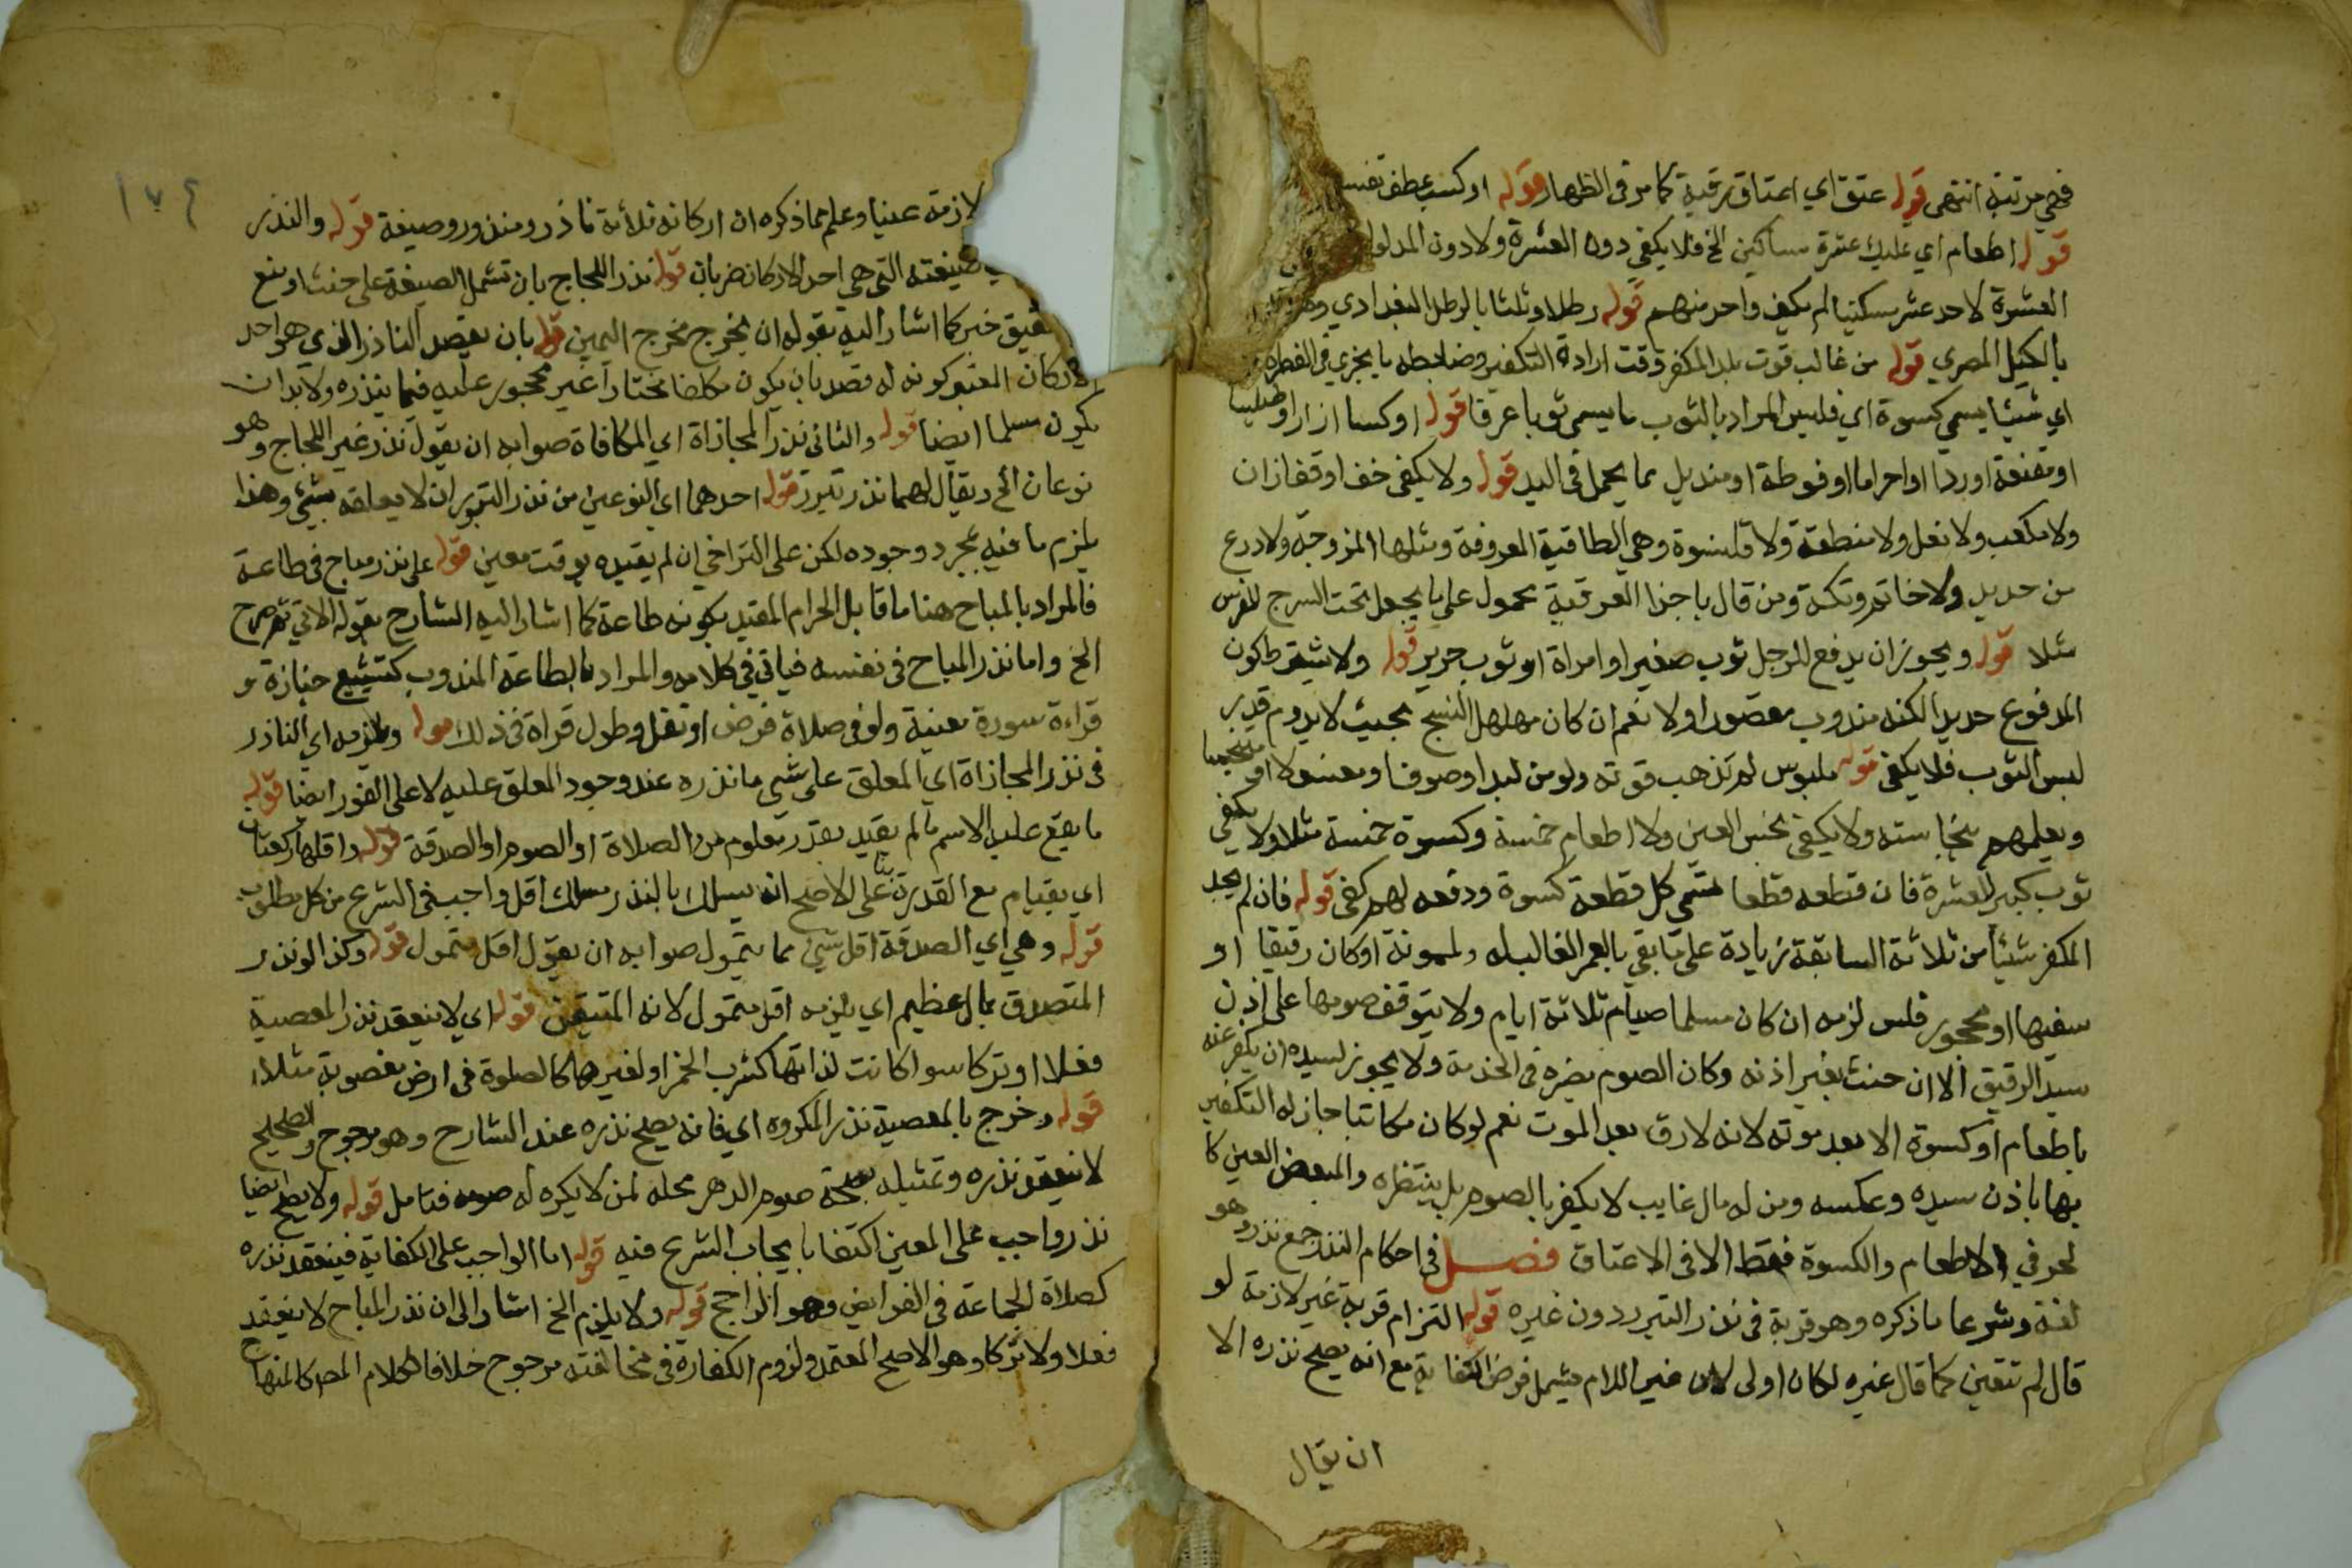 فهي مرتبة انتهى قوله عتق اي اعتاق رقبة كما مر في الظهار قوله او كسب عطف تفسير
قوله اطعام اي تمليك عشرة مساكين الخ فلا يكفي دون العشرة ولا دون المد لو
العشرة لاحد عشر مسكينا لم يكف واحد منهم قوله رطلا وثلثا بالرطل البغدادي
بالكيل المصري قوله من غالب قوت بلد المكفر وقت ارادة التكفير وضابطه ما يجزي في الفطرة
اي شيئا يسمى كسوة اي فليس المراد بالثوب ما يسمى ثوبا عرفا قوله او كسا ازار او
او مقنعة او ردا او احراما او فوطة او منديل مما يحمل في اليد قوله ولا يكفي خف او قفازان
ولا مكعب ولا نعل ولا منطقة ولا قلنسوة وهي الطاقية المعروفة ومثلها المزوجة ولا درع
من حديد ولا خاتم وتكة ومن قال باجزا العرقية محمول على ما يجعل تحت السرج للفرس
مثلا قوله ويجوز ان يدفع للرجل ثوب صغير او امراة او ثوب حرير قوله ولا يشترط كون
المدفوع جديدا لكنه مندوب مقصورا ولا نعم ان كان مهلهل النسج بحيث لا يدوم قدر
لبس الثوب فلا يكفي قوله ملبوس لم تذهب قوته ولو من لبد او صوف او مغسولا او متنجسا
ويعلمهم بنجاسته ولا يكفي نجس العين ولا اطعام خمسة وكسوة خمسة مثلا ولا يكفي
ثوب كبير للعشرة فان قطعه قطعا تسمى كل قطعة كسوة ودفعه لهم كفى قوله فان لم يجد
المكفر شيئا من ثلاثة السابقة زيادة على ما بقي بالعمر الغالب له ولممونة او كان رقيقا او
سفيها او محجور فلس لزمه ان كان مسلما صيام ثلاثة ايام ولا يتوقف صومها على اذن
سيد الرقيق الا ان حنث بغير اذنه وكان الصوم يضره في الخدمة ولا يجوز لسيده ان يكفر عنه
باطعام او كسوة الا بعد موته لانه لا رق بعد الموت نعم لو كان مكاتبا جاز له التكفير
بها باذن سيده وعكسه ومن له مال غايب لا يكفر بالصوم بل ينتظره والمبعض العين كا
لحر في الاطعام والكسوة فقط الا في الاعتاق فصل في احكام النذر جمع نذر وهو
لغة وشرعا ما ذكره وهو قربة في نذر التبرر دون غيره قوله التزام قربة غير لازمة لو
قال لم تتعين كما قال غيره لكان اولى لان غير اللازم يشمل فرض الكفاية مع انه يصح نذره الا
ان يقال
١٧٤
لازمة عينا وعلم مما ذكره ان اركانه ثلاثة ناذر ومنذور وصيغة قوله والنذر
صيغته التي هي احد الاركان ضربان قوله نذر اللجاج بان تشمل الصيغة على حث او منع
تحقيق خبر كما اشار اليه بقوله ان يخرج مخرج اليمين قوله بان يقصد الناذر الذي هو احد
الاركان المعتبر كونه له قصد بان يكون مكلفا مختارا غير محجور عليه فيما ينذره ولا بد ان
يكون مسلما ايضا قوله والثاني نذر المجازاة اي المكافاة صوابه ان يقول نذر غير اللجاج وهو
نوعان الخ ويقال لهما نذر تبرر قوله احدهما اي النوعين من نذر التبرر ان لا يعلقه بشيئ وهذا
يلزم ما فيه بمجرد وجوده لكن على التراخي ان لم يقيده بوقت معين قوله على نذر مباح في طاعة
فالمراد بالمباح هنا ما قابل الحرام المقيد بكونه طاعة كما اشار اليه الشارح بقوله الاتي ثم صرح
الخ واما نذر المباح في نفسه فياتي في كلامه والمراد بالطاعة المندوب كتشييع جنازة و
قراءة سورة معينة ولو في صلاة فرض او نفل وطول قراة في ذلك قوله ويلزمه اي الناذر
في نذر المجازاة اي المعلق على شي ما نذره عند وجود المعلق عليه لا على الفور ايضا قوله
ما يقع عليه الاسم ما لم يقيد بقدر معلوم من الصلاة او الصوم او الصدقة قوله واقلها ركعتان
اي بقيام مع القدرة بنا على الاصح انه يسلك بالنذر مسلك اقل واجب في الشرع من كل مطلوب
قوله وهي اي الصدقة اقل شيئ مما يتمول صوابه ان يقول اقل متمول قوله وكذا لو نذر
المتصدق بمال عظيم اي يلزمه اقل متمول لانه المتيقن قوله اي لا ينعقد نذر المعصية
فعلا او تركا سوا كانت لذاتها كشرب الخمر او لغيرها كالصلوة في ارض مغصوبة مثلا
قوله وخرج بالمعصية نذر المكروه اي فانه يصح نذره عند الشارح وهو مرجوح والصحيح
لا ينعقد نذره وتمثيله بصحة صوم الدهر محله لمن لا يكره له صومه فتامل قوله ولا يصح ايضا
نذر واجب على المعين اكتفا بايجاب الشرع فيه قوله اما الواجب على الكفاية فينعقد نذره
كصلاة الجماعة في الفرايض وهو الراجح قوله ولا يلزم الخ اشار الى ان نذر المباح لا ينعقد
فعلا ولا تركا وهو الاصح المعتمد ولزوم الكفارة في مخالفته مرجوح خلافا لكلام المص كالمنهاج